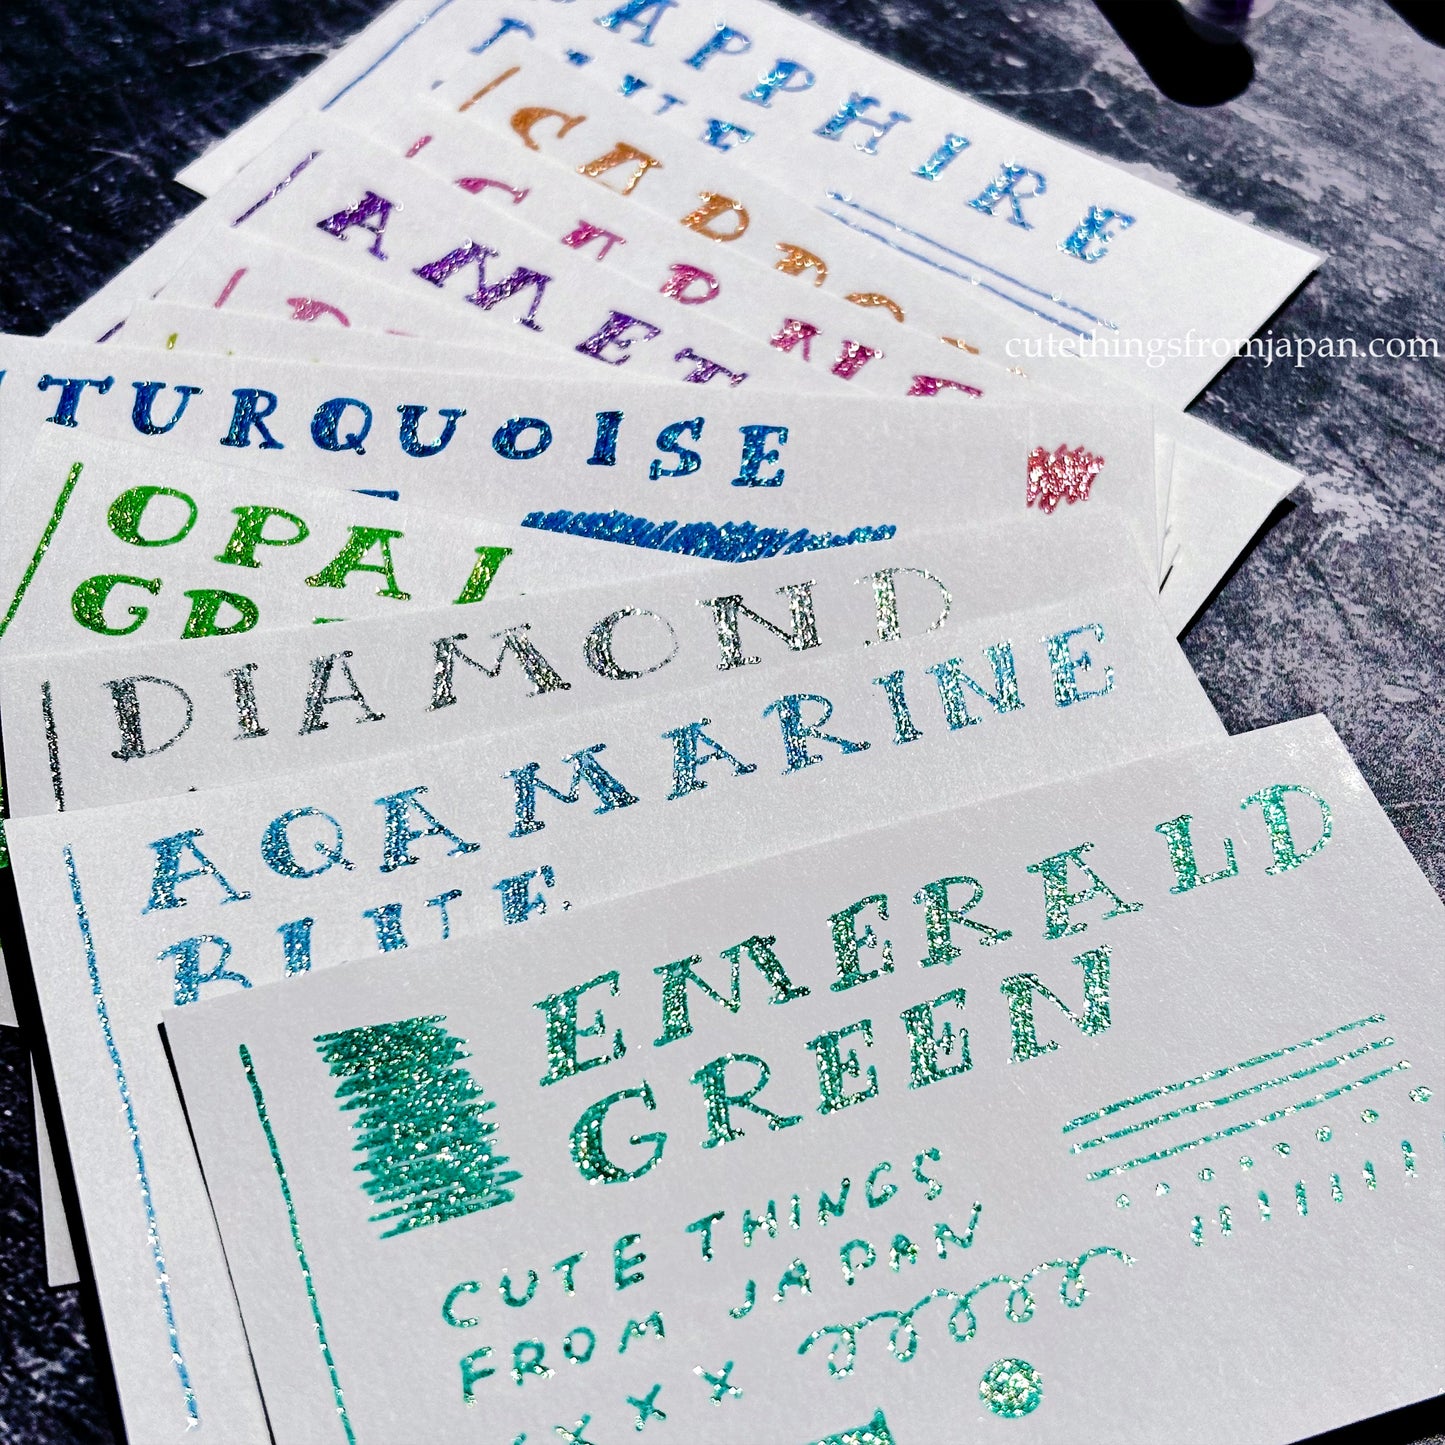 SAPPHIRE
cutethingsfromjapan.com
TURQUOISE
OPAL
DIAMOND
AQAMARINE
BLUE
EMERALD
GREEN
CUTE THINGS
FROM JAPAN